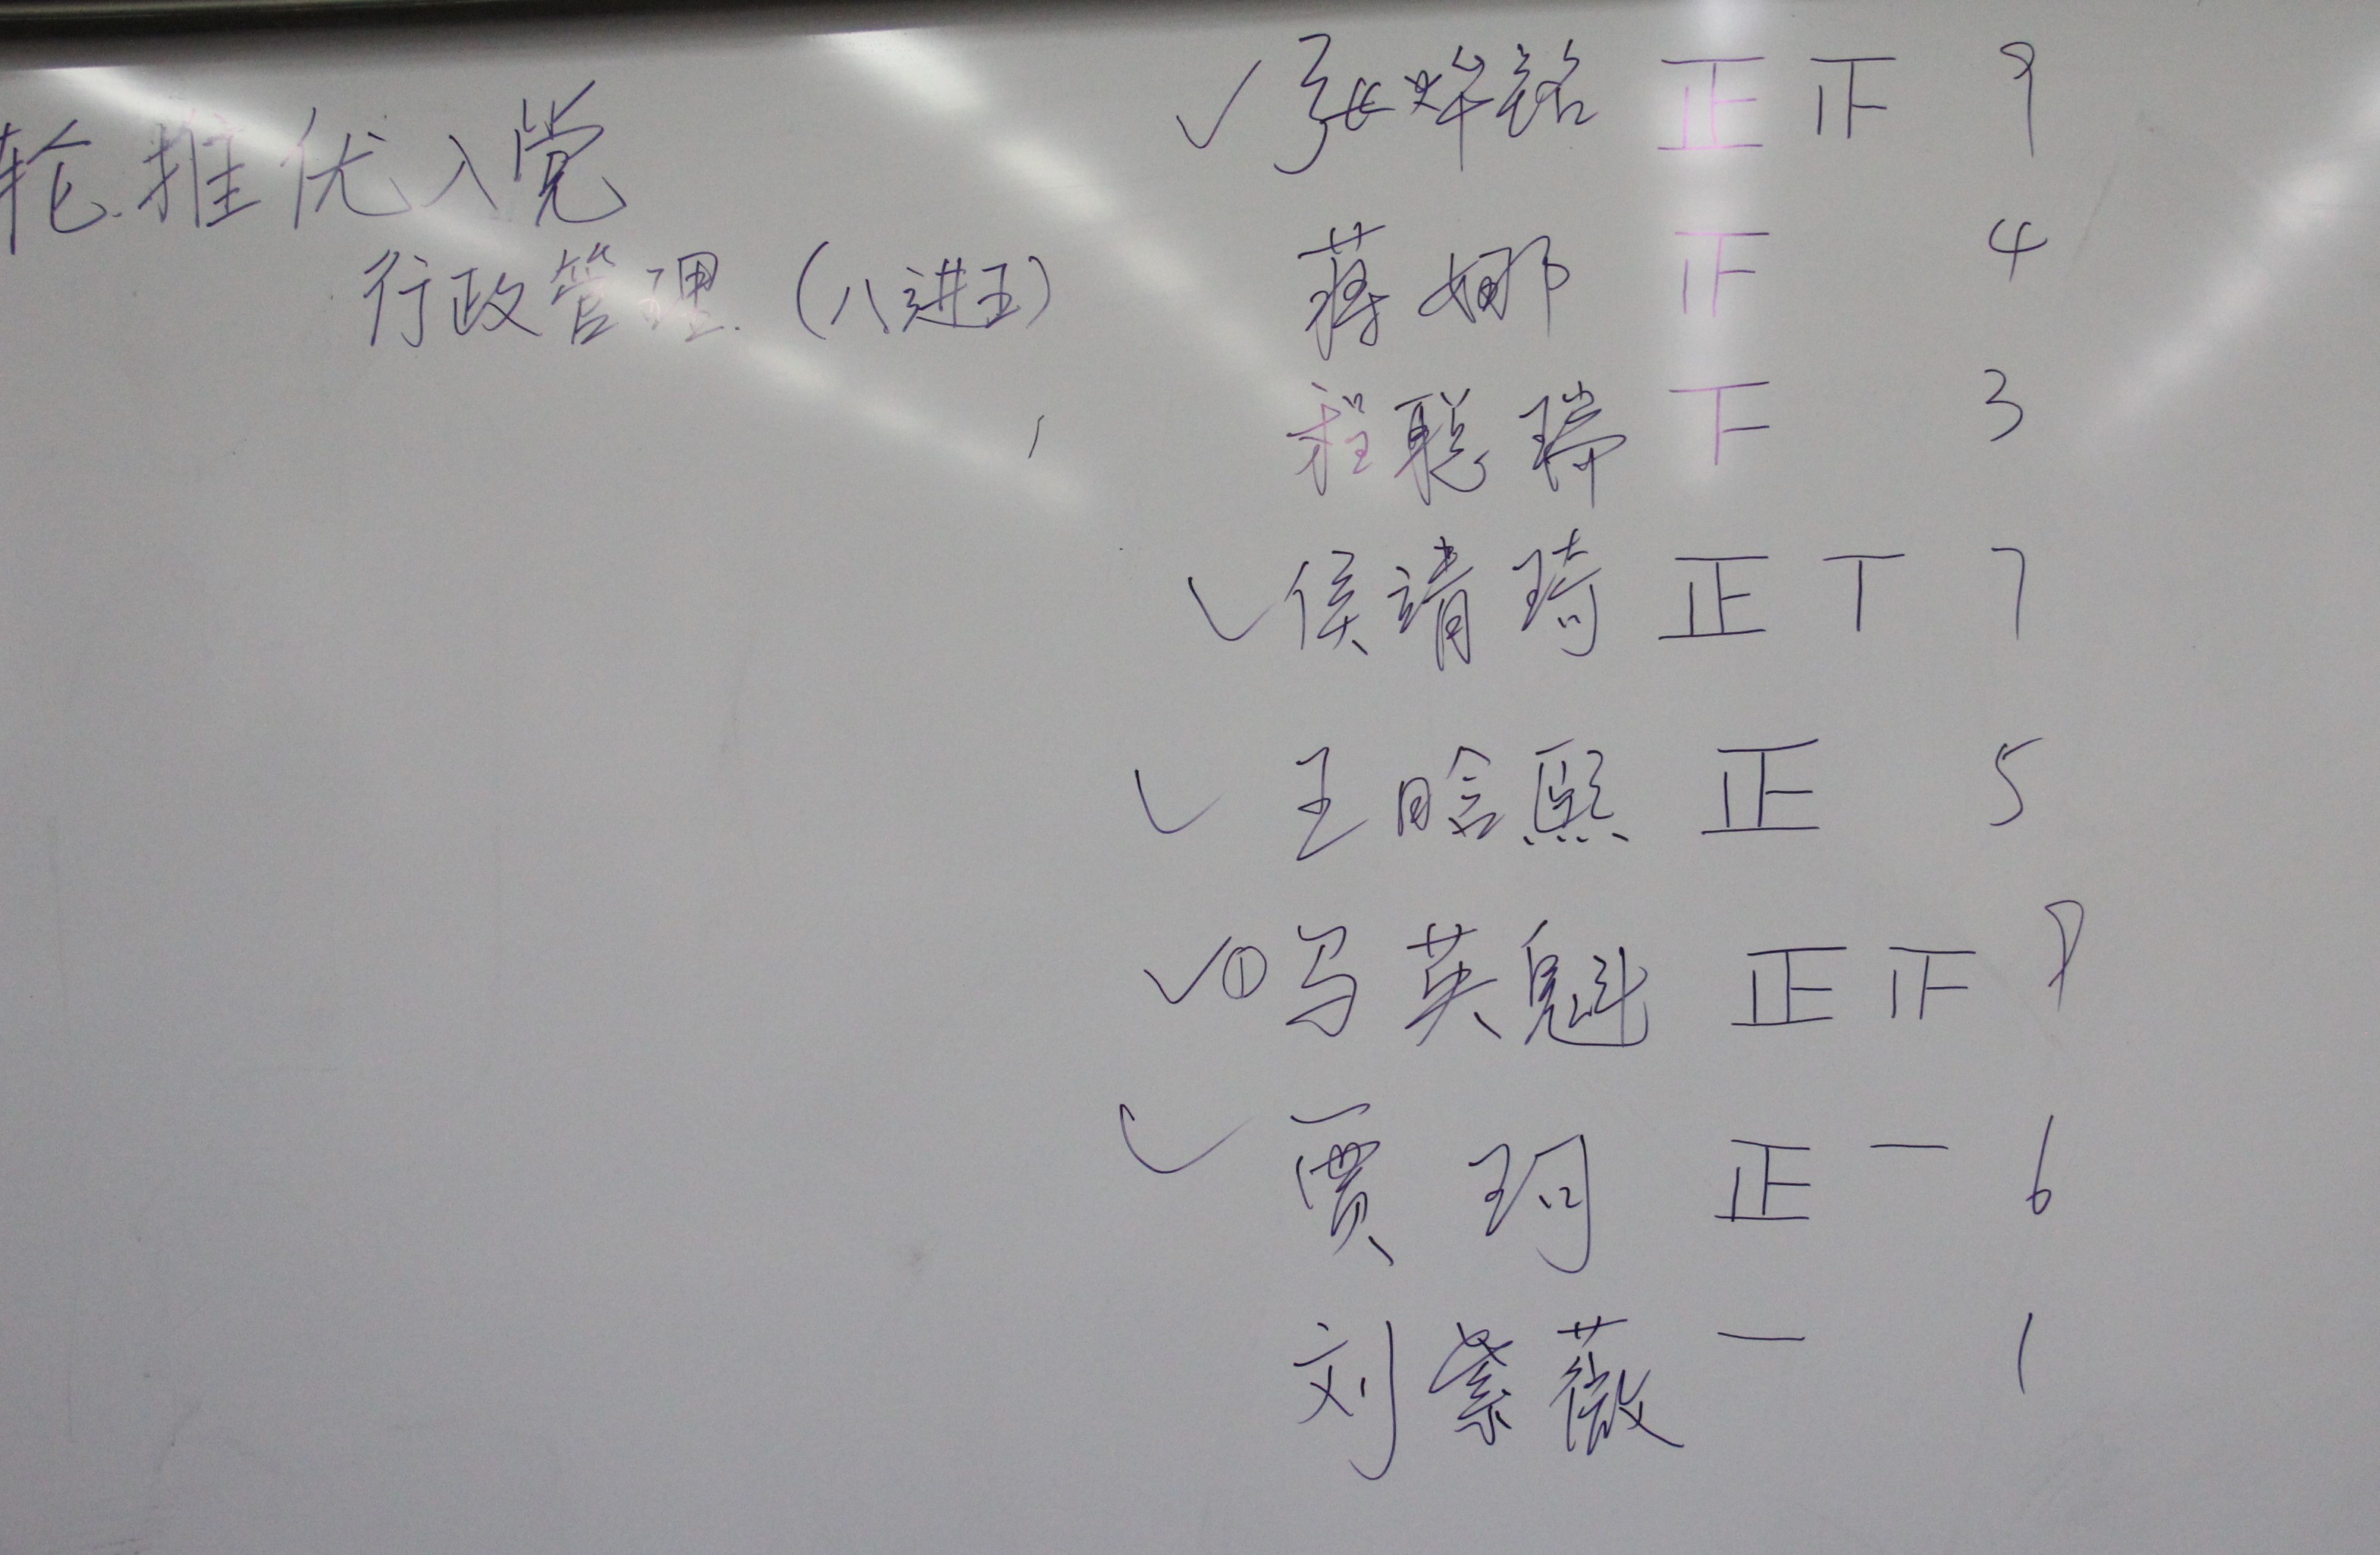 轮推优入党
行政管理(八进五)
✓张烨铭 正正 9
蒋娜 正 4
程聪瑞 下 3
✓侯靖琦 正丅 7
✓王晗熙 正 5
✓①马英魁 正正 9
✓贾珂 正一 6
刘紫薇 一 1